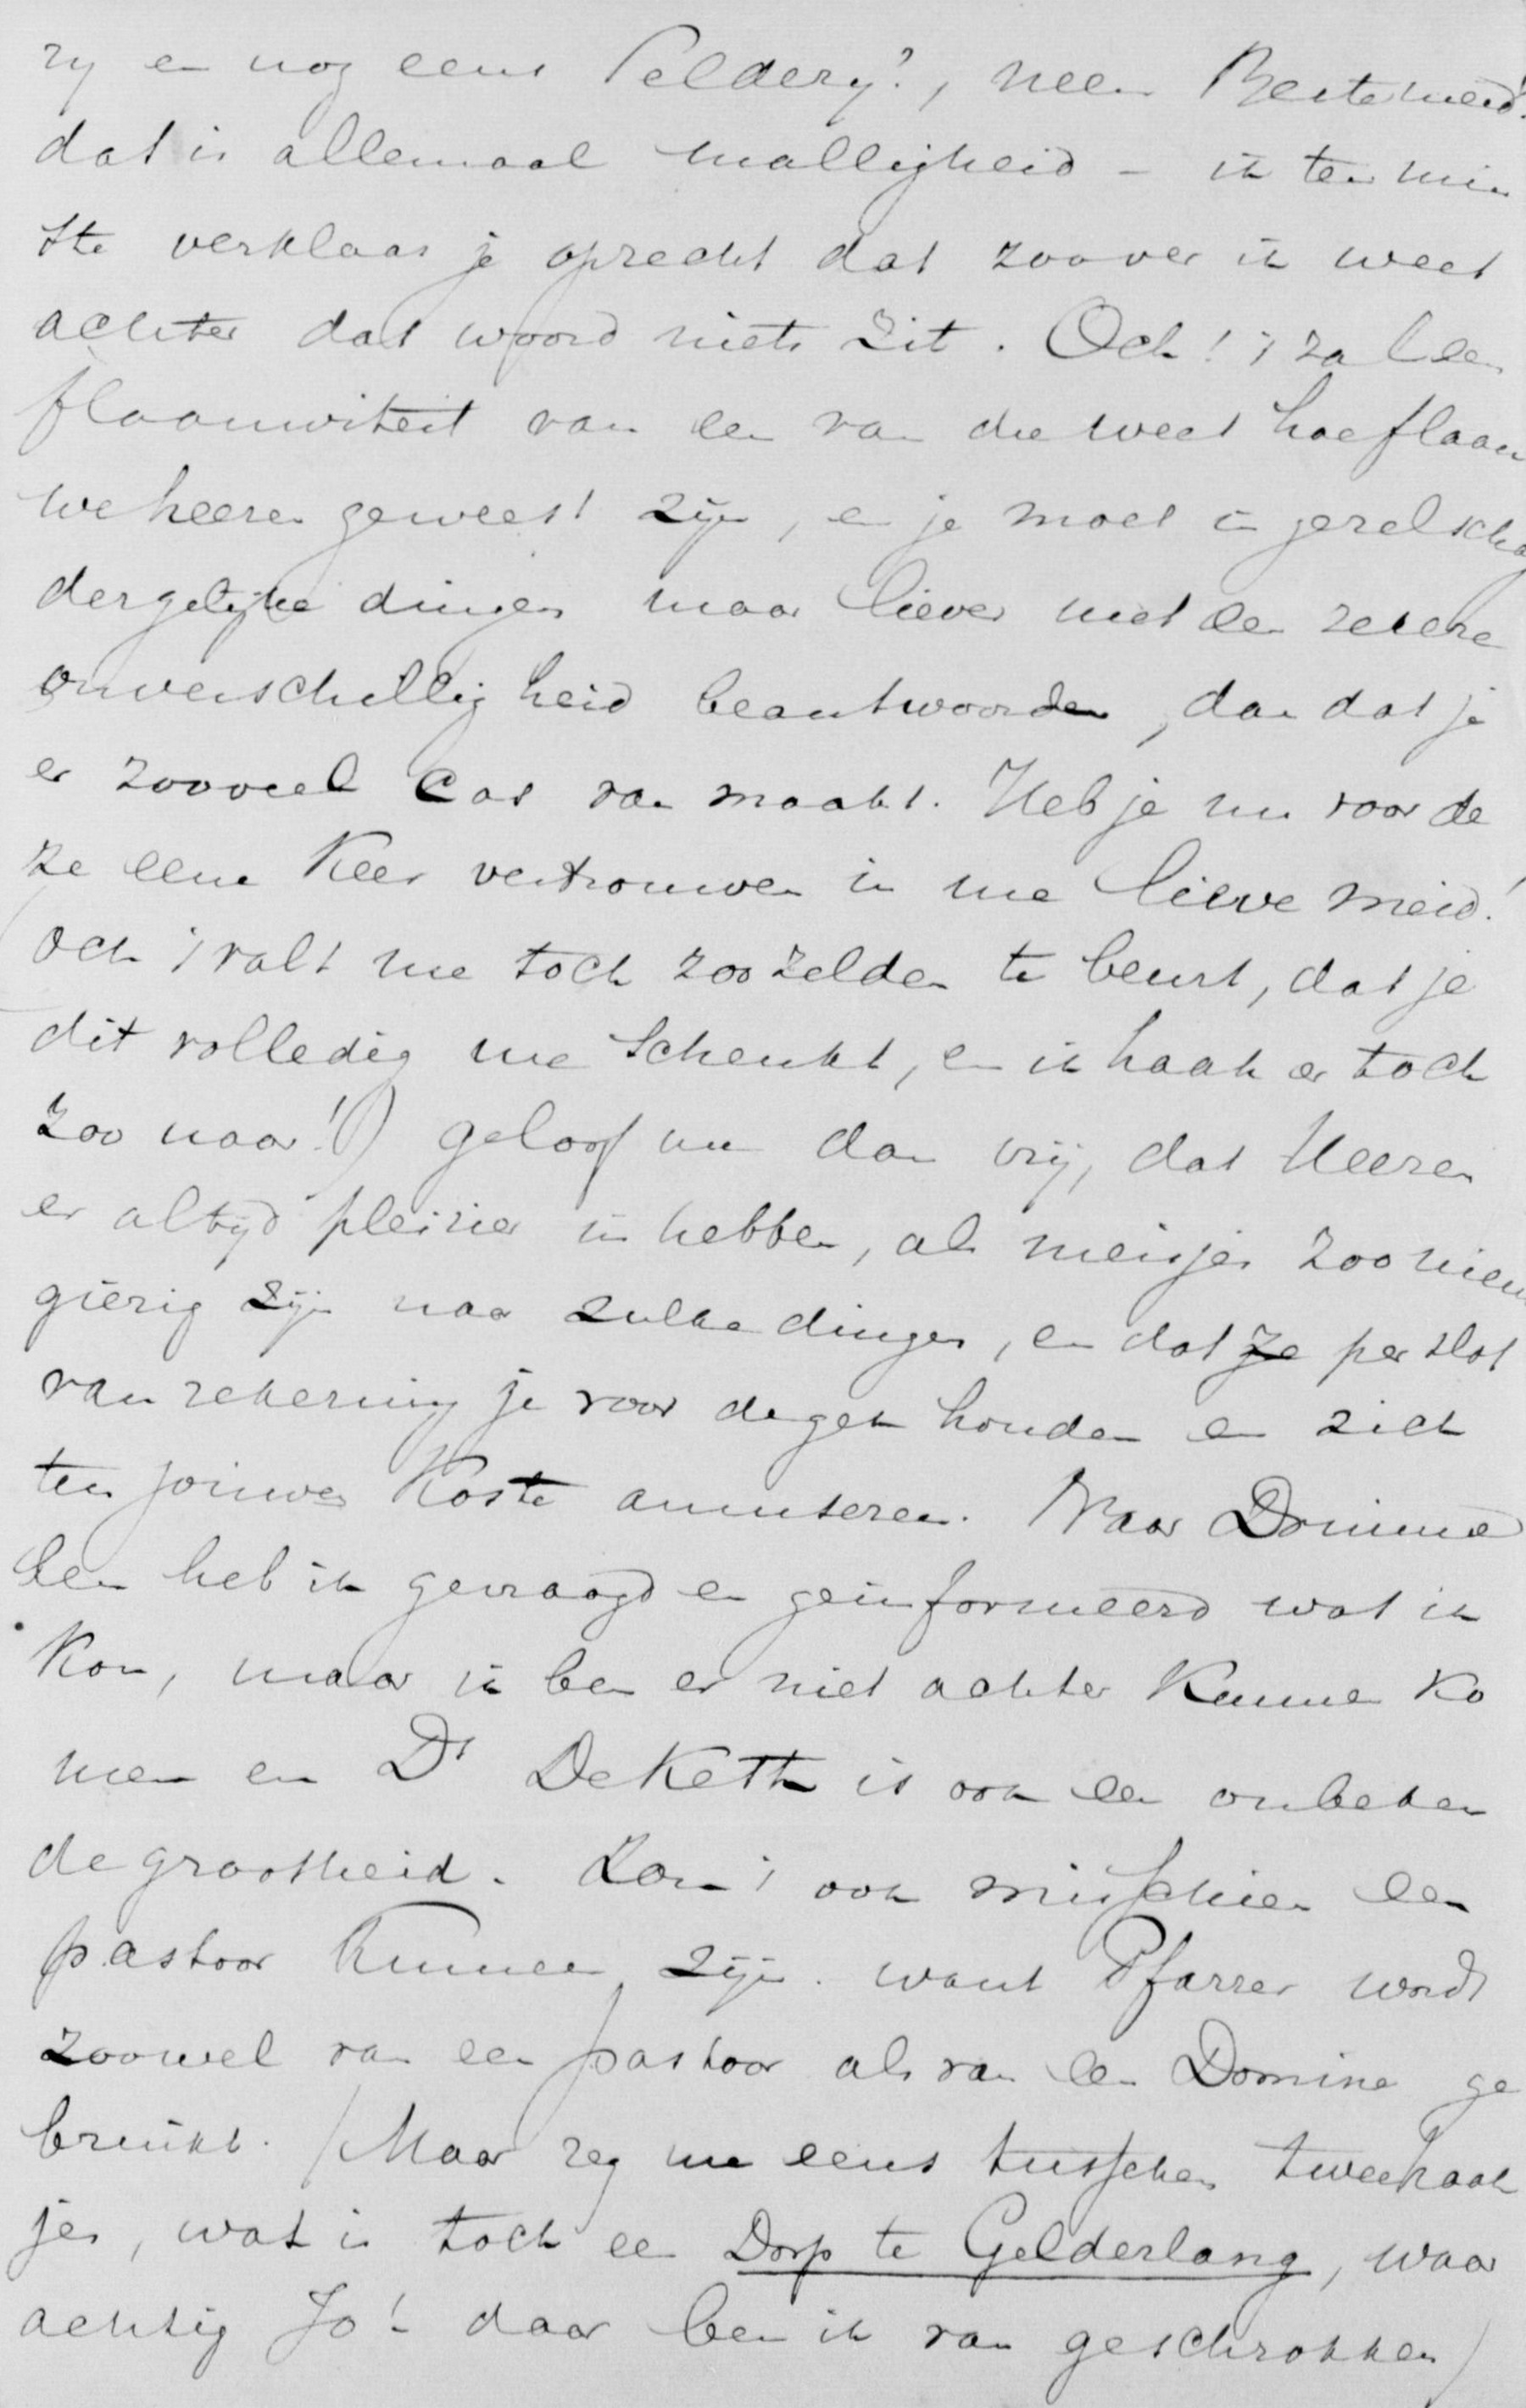 rij en nog eens Peldery?, neen Bestemeid!
dat is allemaal malligheid - ik ten min
ste verklaar je oprecht dat zoover ik weet
achter dat woord niets zit. Och! 't zal een
flaauwiteit van een van die weet hoe flaau
we heeren geweest zijn, en je moet in gezelscha
dergelijke dingen maar liever met een zekere
onverschilligheid beantwoorden, dan dat je
er zooveel cas van maakt. Heb je nu voor de
ze eene keer vertrouwen in me lieve meid!
(och 't valt me toch zoo zelden te beurt, dat je
dit volledig me schenkt, en ik haak er toch
zoo naar!) geloof me dan vrij, dat Heeren
er altijd pleizier in hebben, als meisjes zoo nieuw
gierig zijn naar zulke dingen, en dat ze per slot
van rekening je voor de gek houden en zich
ten jouwen koste amuseren. Naar Domine
Ben heb ik gevraagd en geïnformeerd wat ik
kon, maar ik ben er niet achter kunnen ko
men en Ds DeKeth is ook een onbeken
de grootheid. Kon 't ook misschien een
pastoor kunnen zijn. want Pfarrer wordt
zoowel van een pastoor als van een Domine ge
bruikt. (Maar zeg me eens tusschen twee haak
jes, wat is toch een Dorp te Gelderlang, waar
achtig Jo! daar ben ik van geschrokken)